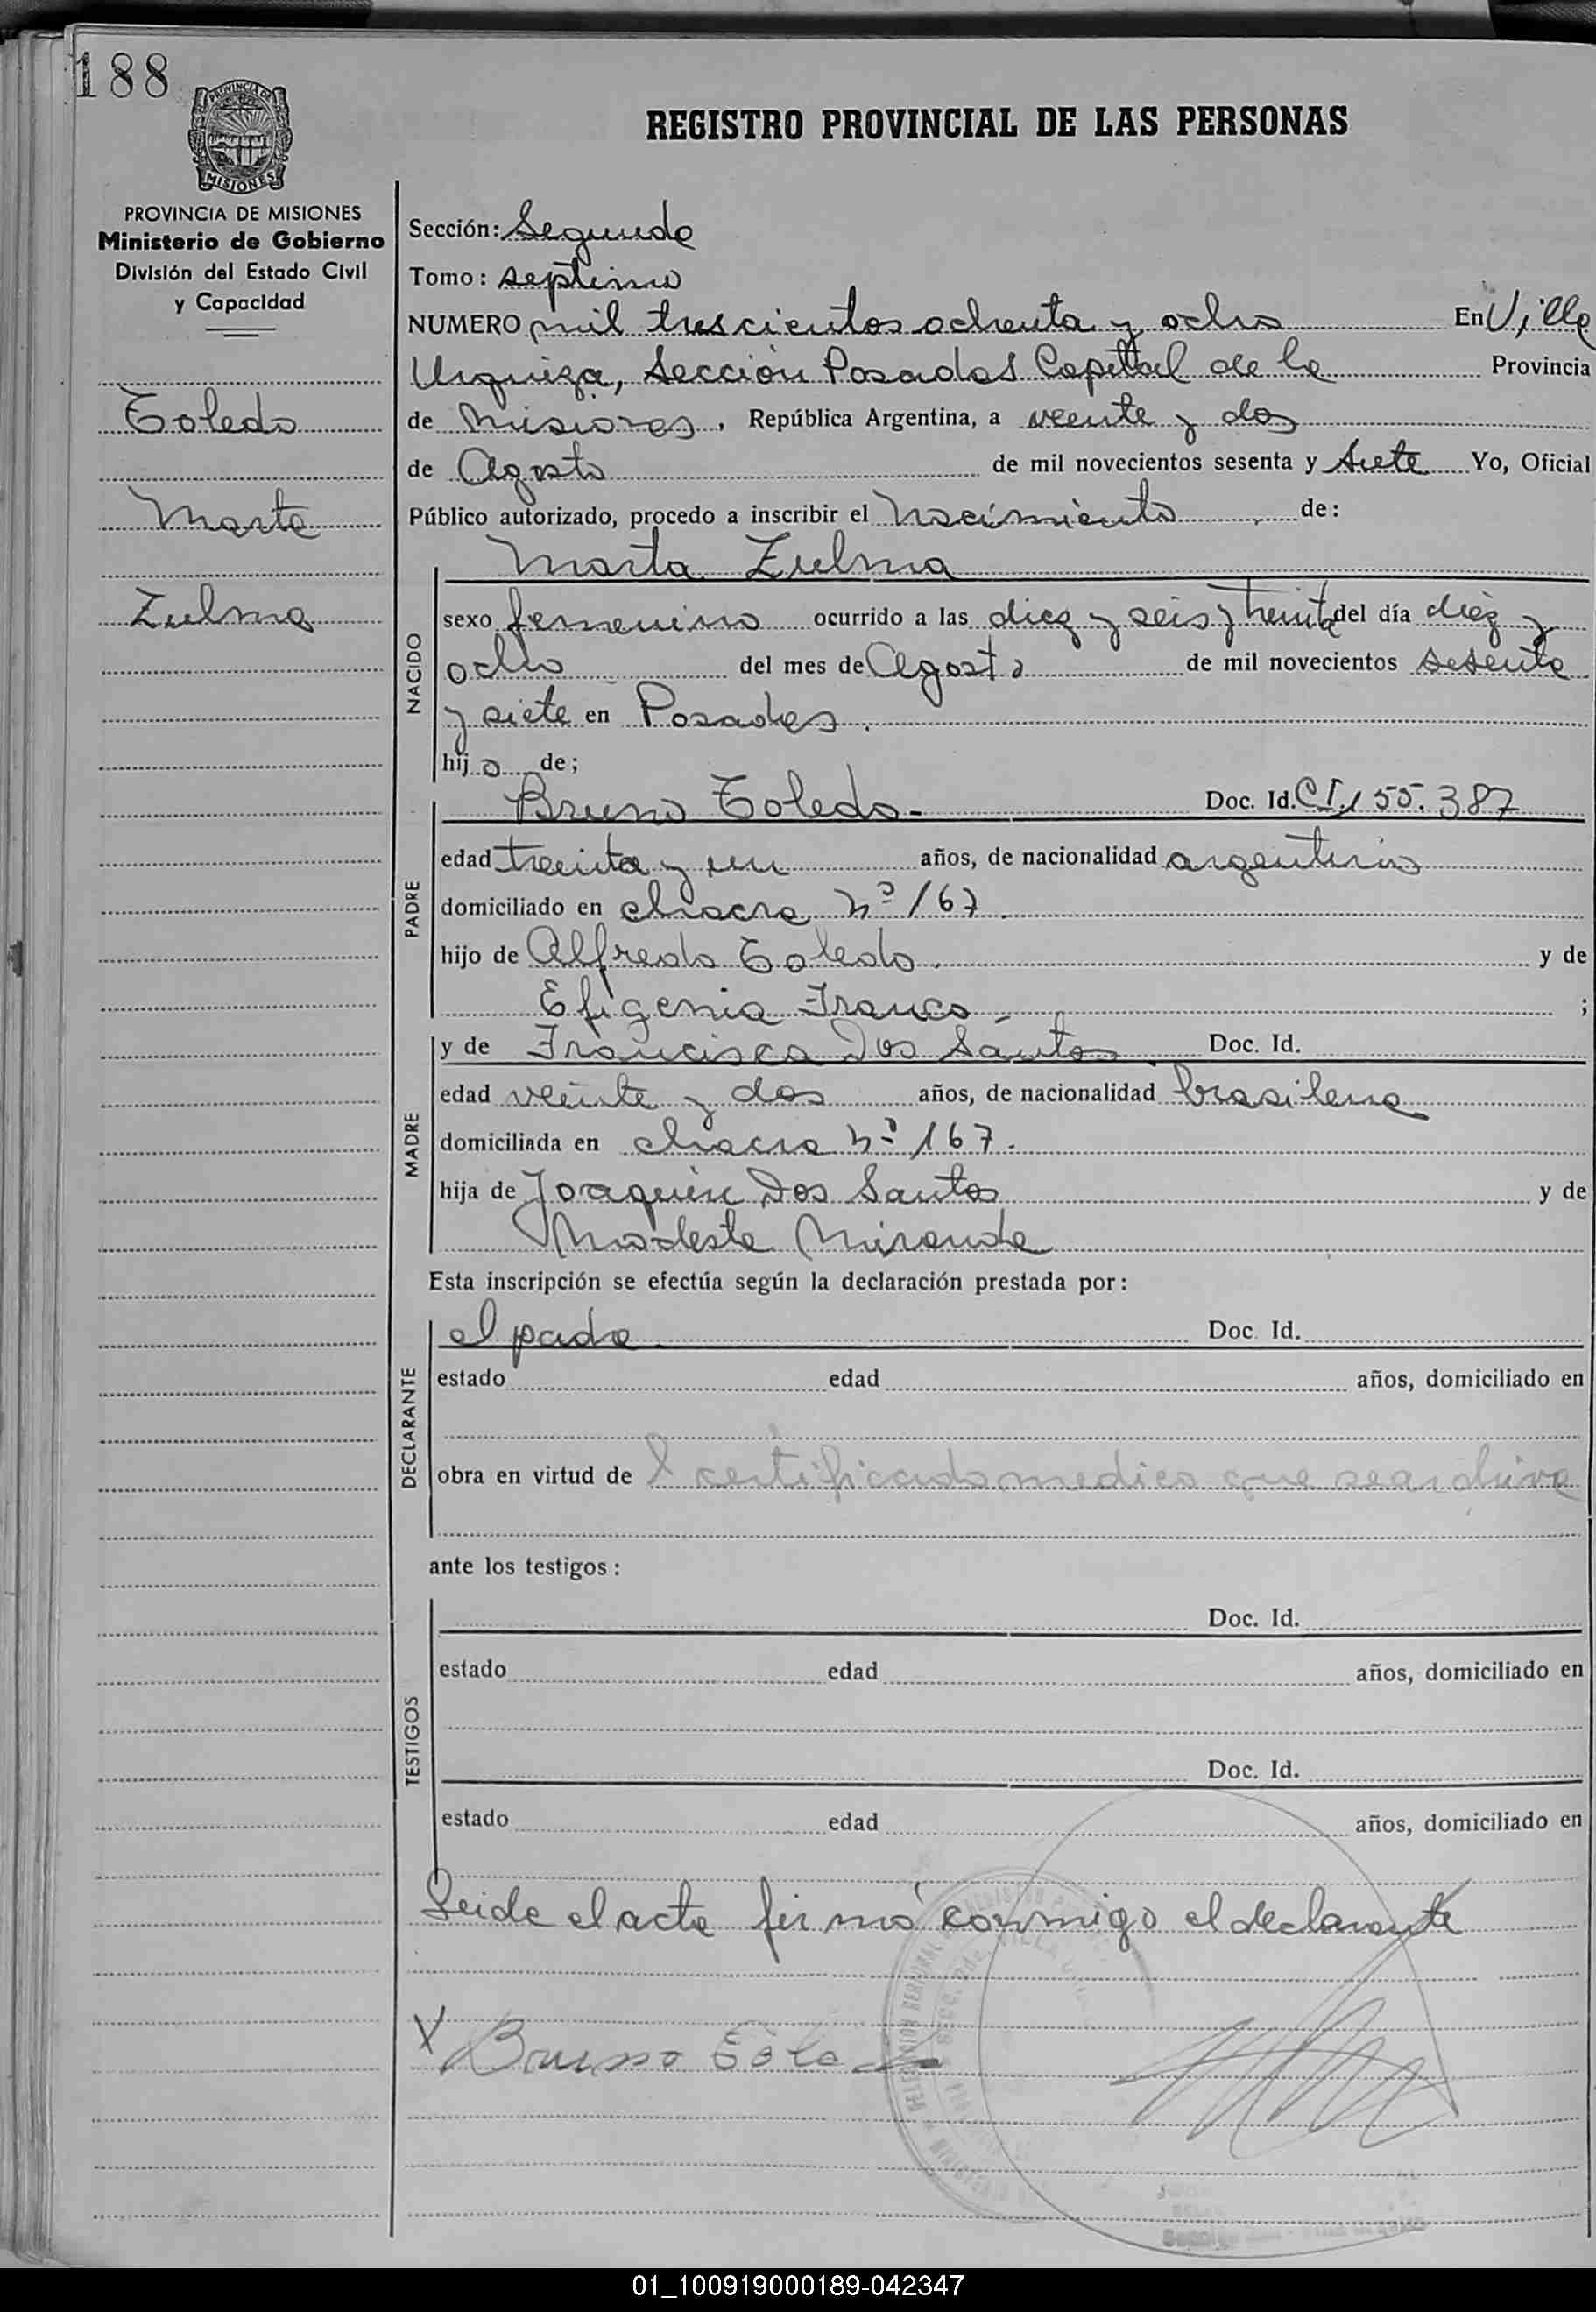 188
PROVINCIA DE MISIONES
MISIONES
PROVINCIA DE MISIONES
Ministerio de Gobierno
División del Estado Civil
y Capacidad
Toledo
Marta
Zulma
REGISTRO PROVINCIAL DE LAS PERSONAS
Sección: Segunda
Tomo: septimo
NUMERO mil trescientos ochenta y ocho En Villa
Urquiza, Sección Posadas Capital de la Provincia
de Misiones, República Argentina, a veente y dos
de Agosto de mil novecientos sesenta y siete Yo, Oficial
Público autorizado, procedo a inscribir el Nacimiento de:
Marta Zulma
NACIDO
sexo femenino ocurrido a las diez y seis y treinta del día diez y
ocho del mes de Agosto de mil novecientos sesenta
y siete en Posadas.
hija de;
PADRE
Bruno Toledo- Doc. Id. C.I. 155.387
edad treinta y un años, de nacionalidad argentino
domiciliado en chacra Nº 167.
hijo de Alfredo Toledo. y de
Efigenia Franco- ;
MADRE
y de Francisca Dos Santos Doc. Id.
edad veinte y dos años, de nacionalidad brasilena
domiciliada en chacra Nº 167.
hija de Joaquin Dos Santos y de
Modesta Miranda
Esta inscripción se efectúa según la declaración prestada por:
DECLARANTE
el padre Doc. Id.
estado edad años, domiciliado en
obra en virtud de certificado medico que se archiva
ante los testigos:
TESTIGOS
Doc. Id.
estado edad años, domiciliado en
Doc. Id.
estado edad años, domiciliado en
Leida el acta firmó conmigo el declarante
X Bruno Toledo
01_100919000189-042347